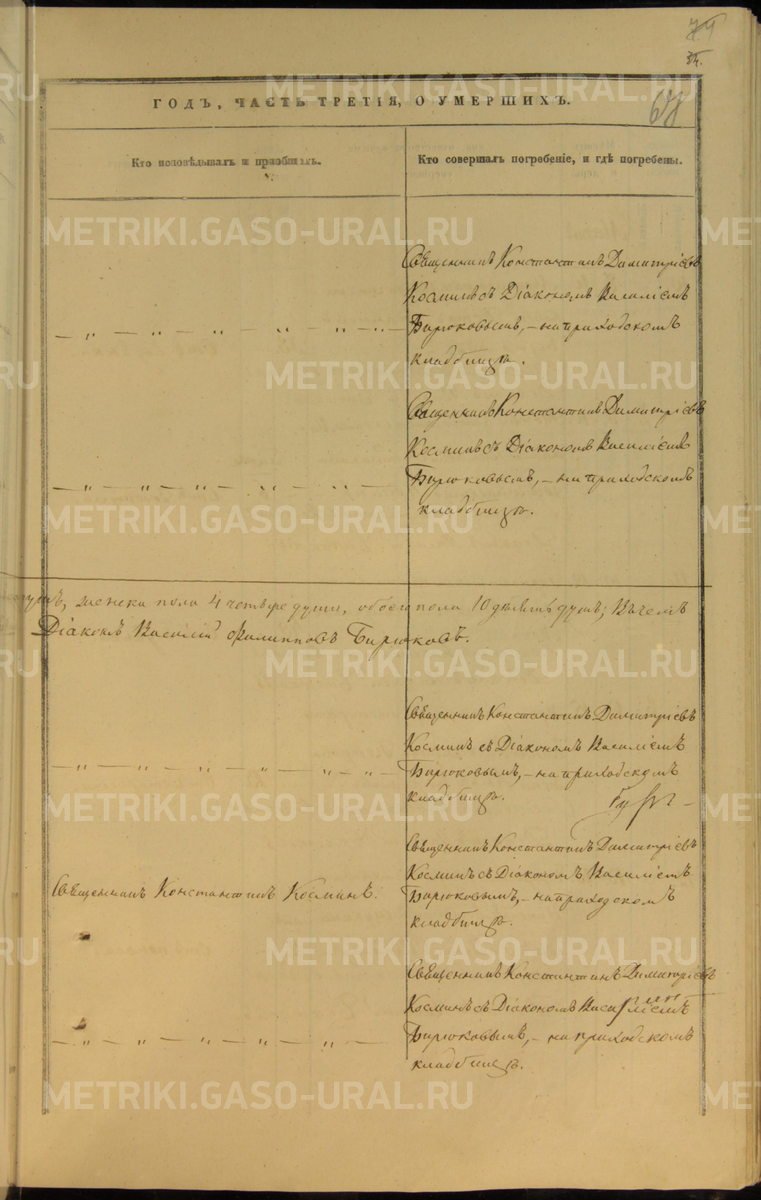 74
34.
68
ГОДЪ, ЧАСТЬ ТРЕТІЯ, О УМЕРШИХЪ.
Кто исповѣдывалъ и пріобщалъ.
Кто совершалъ погребеніе, и гдѣ погребены.
Священникъ Константинъ Димитріевъ
Косминъ съ Діакономъ Василіемъ
— „ — „ — „ — „ — „ — Бирюковымъ, — на приходскомъ
кладбищѣ.
Священникъ Константинъ Димитріевъ
Косминъ съ Діакономъ Василіемъ
— „ — „ — „ — „ — „ — Бирюковымъ, — на приходскомъ
кладбищѣ.
женска пола 4 четыре души, обоего пола 10 десять душъ; Въ чемъ
Діаконъ Василій Филипповъ Бирюковъ.
Священникъ Константинъ Димитріевъ
Косминъ съ Діакономъ Василіемъ
— „ — „ — „ — „ — „ — „ — Бирюковымъ, — на приходскомъ
кладбищѣ.
Священникъ Константинъ Димитріевъ
Косминъ съ Діакономъ Василіемъ
Священникъ Константинъ Косминъ.
Бирюковымъ, — на приходскомъ
кладбищѣ.
Священникъ Константинъ Димитріевъ
Косминъ съ Діакономъ Василіемъ
— „ — „ — „ — „ — „ — „ — Бирюковымъ, — на приходскомъ
кладбищѣ.
METRIKI.GASO-URAL.RU